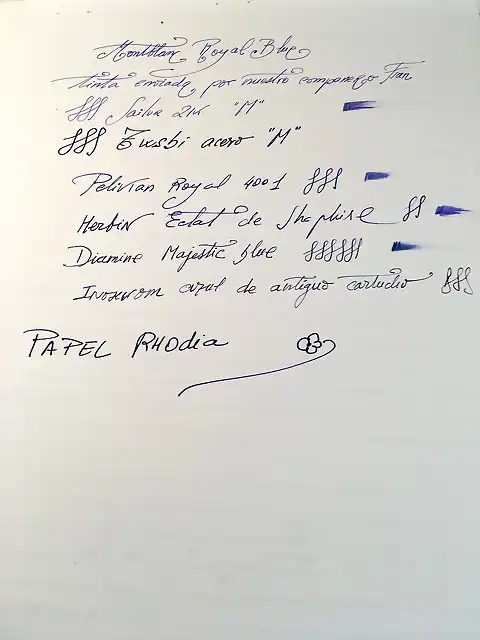 Montblanc Royal Blue
tinta enviada, por nuestro compañero Fran
Sailor 21K "M"
Twsbi acero "M"
Pelikan Royal 4001
Herbin Eclat de Shaphire
Diamine Majestic blue
Inoxcrom azul de antiguo cartucho
PAPEL RHODIA